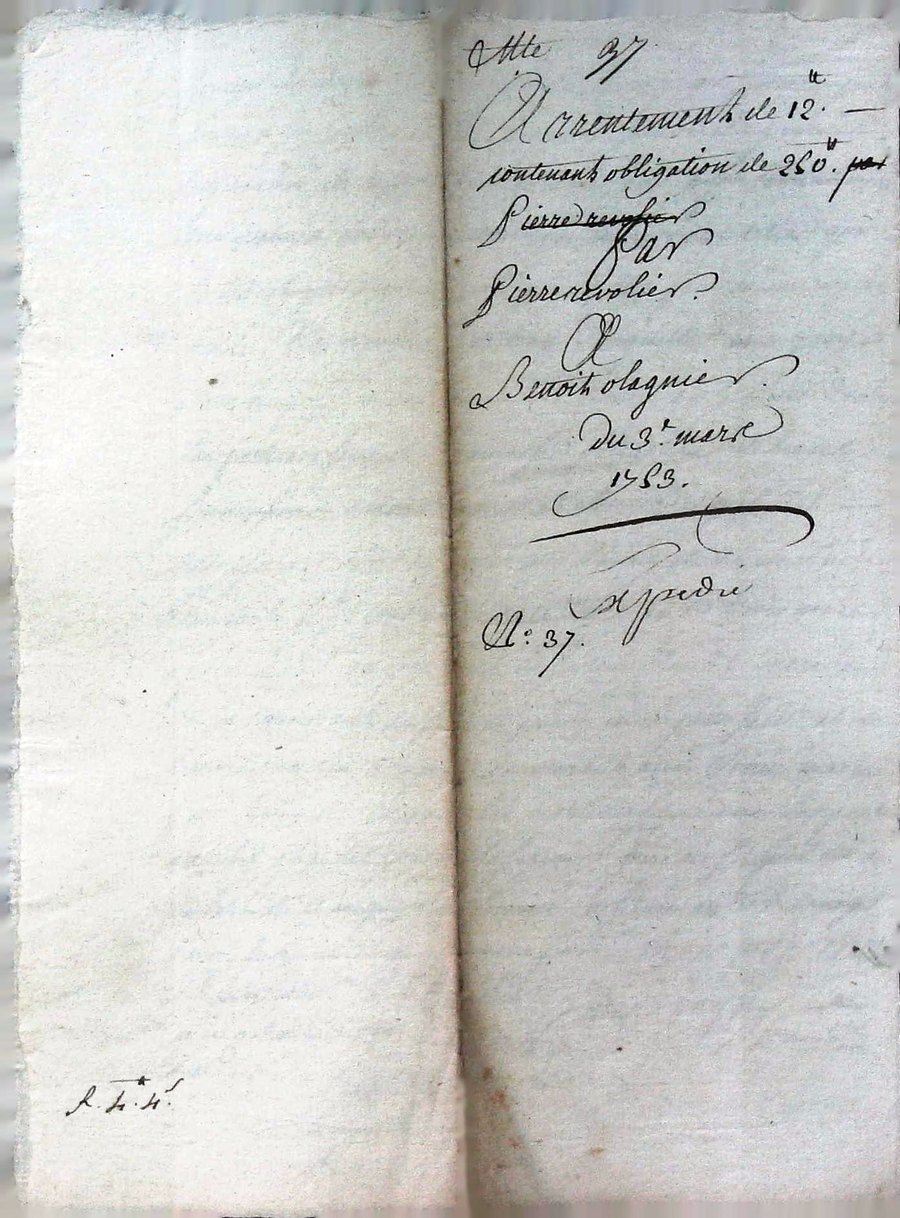 Mte 37
Arrentement de 12ᵗᵗ. —
contenant obligation de 250ᵗᵗ. par
Pierre revolier
Par
Pierre revolier.
A
Benoit olagnier.
Du 3.ᵉ mars
1753.
Expedié
N.º 37.
R. 4.ᵗᵗ 4.ˢ